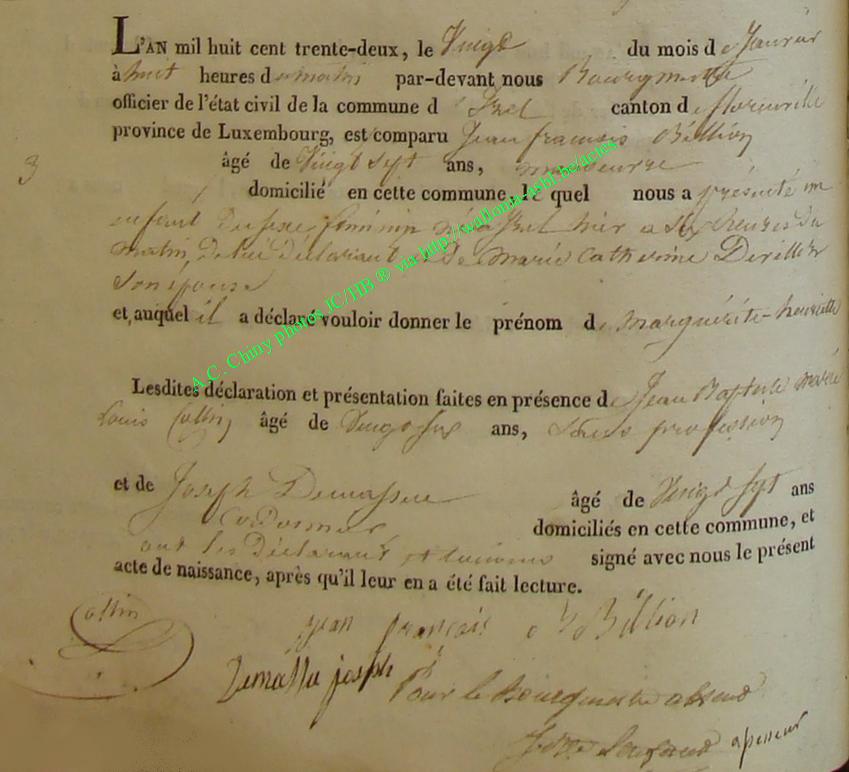 L'AN mil huit cent trente-deux, le Vingt du mois de Janvier
à huit heures du matin par-devant nous Bourgmestre
officier de l'état civil de la commune d'Izel canton de florenville
province de Luxembourg, est comparu Jean françois Billion
3 âgé de Vingt Sept ans,
domicilié en cette commune, le quel nous a présenté un
enfant du sexe féminin né à Izel hier a six heures du
matin, de lui déclarant et de marie Catherine
Son épouse
et auquel il a déclaré vouloir donner le prénom de marguérite-henriette
Lesdites déclaration et présentation faites en présence de Jean Baptiste marie
Louis Collin âgé de Vingt six ans, Sans profession
et de Joseph Demasse âgé de Vingt Sept ans
Cordonnier domiciliés en cette commune, et
ont les Déclarant et témoins signé avec nous le présent
acte de naissance, après qu'il leur en a été fait lecture.
Collin
jean françois Billion
joseph
Pour le Bourgmestre absent
assesseur
A.C. Chiny photos JC/HB ® via http://wallonia-asbl.be/actes